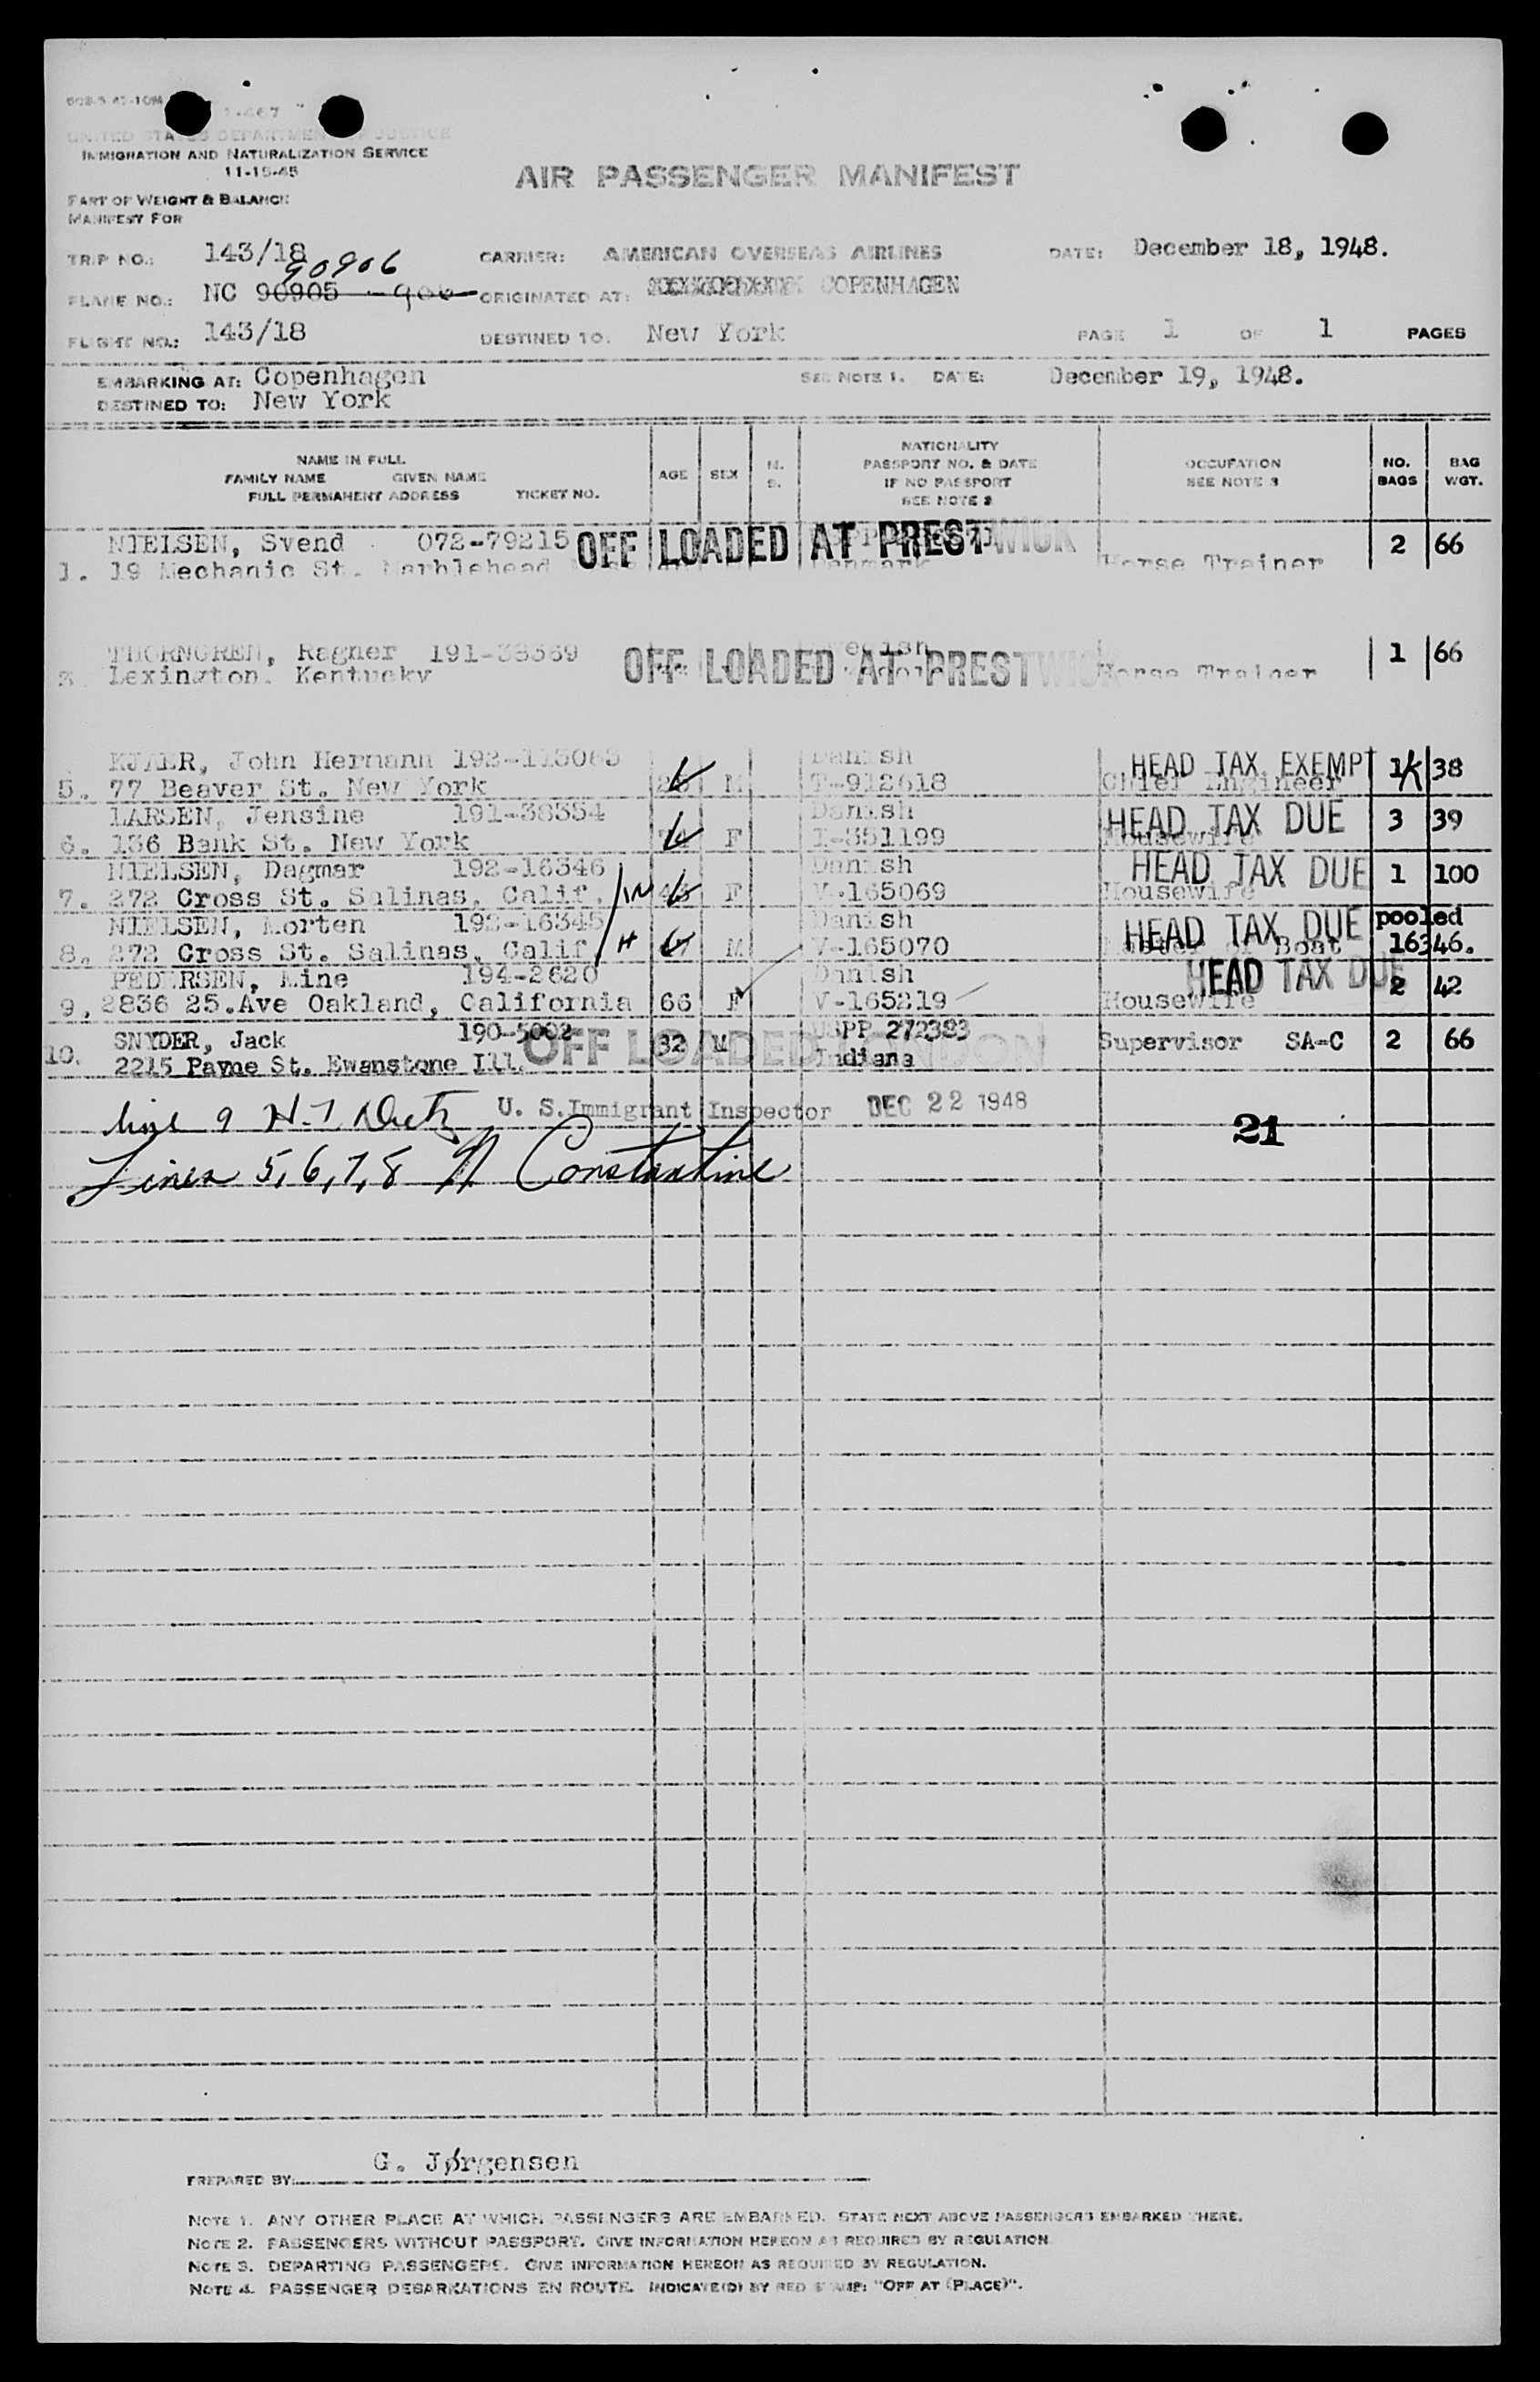 IMMIGRATION AND NATURALIZATION SERVICE
11-15-45
AIR PASSENGER MANIFEST
PART OF WEIGHT & BALANCE
MANIFEST FOR
TRIP NO.: 143/18 CARRIER: AMERICAN OVERSEAS AIRLINES DATE: December 18, 1948.
90906
PLANE NO.: NC 90905 -906 ORIGINATED AT: COPENHAGEN
FLIGHT NO.: 143/18 DESTINED TO. New York PAGE 1 OF 1 PAGES
EMBARKING AT: Copenhagen SEE NOTE 1. DATE: December 19, 1948.
DESTINED TO: New York
NAME IN FULL
FAMILY NAME GIVEN NAME
FULL PERMANENT ADDRESS TICKET NO.
AGE SEX M. S.
NATIONALITY
PASSPORT NO. & DATE
IF NO PASSPORT
SEE NOTE 2
OCCUPATION
SEE NOTE 3
NO. BAGS
BAG WGT.
NIELSEN, Svend 072-79215 OFF LOADED AT PRESTWICK 2 66
1. 19 Mechanic St. Marblehead Denmark Horse Trainer
THORNGREN, Ragner 191-38369 OFF LOADED AT PRESTWICK 1 66
Lexington. Kentucky Horse Trainer
KJAER, John Hermann 192-115063 Danish HEAD TAX EXEMPT 1 38
5. 77 Beaver St. New York M T-912618 Chief Engineer
LARSEN, Jensine 191-38354 Danish HEAD TAX DUE 3 39
6. 136 Bank St. New York F Housewife
NIELSEN, Dagmar 192-16346 Danish HEAD TAX DUE 1 100
7. 272 Cross St. Salinas, Calif. F V-165069 Housewife
NIELSEN, Morten 192-16345 Danish HEAD TAX DUE pooled
8. 272 Cross St. Salinas, Calif M V-165070 Boat 16346.
PEDERSEN, Mine 194-2620 Danish HEAD TAX DUE 2 42
9. 2836 25.Ave Oakland, California 66 F V-165219 Housewife
SNYDER, Jack 190-5002 OFF LOADED LONDON 32 M USPP 272383 Supervisor SA-C 2 66
10. 2215 Payne St. Ewanstone Ill. Indiana
line 9 H.T. U. S. Immigrant Inspector DEC 22 1948
21
Lines 5,6,7,8 Constantine
PREPARED BY: G. Jørgensen
NOTE 1. ANY OTHER PLACE AT WHICH PASSENGERS ARE EMBARKED. STATE NEXT ABOVE PASSENGERS EMBARKED THERE.
NOTE 2. PASSENGERS WITHOUT PASSPORT. GIVE INFORMATION HEREON AS REQUIRED BY REGULATION
NOTE 3. DEPARTING PASSENGERS. GIVE INFORMATION HEREON AS REQUIRED BY REGULATION.
NOTE 4. PASSENGER DEBARKATIONS EN ROUTE. INDICATE(D) BY RED STAMP: "OFF AT (PLACE)".